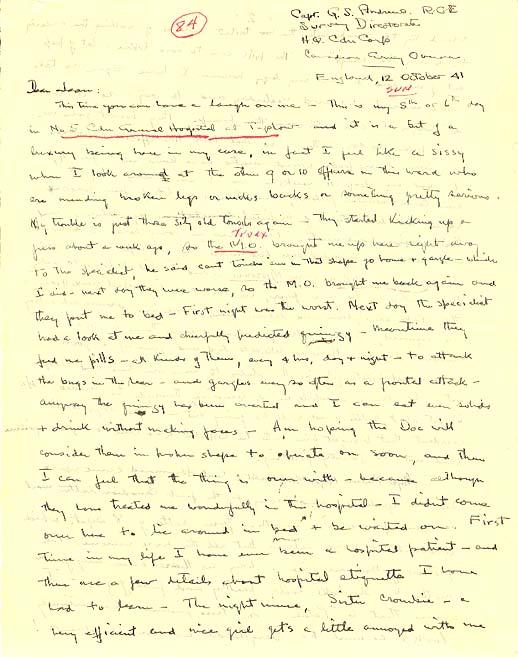 84
Capt. G. S. Andrews. R.C.E
Survey Directorate
H.Q. Cdn Corp
Canadian Army Overseas
England, 12 October 41
SUN
Dear
This time you can have a laugh on me - This is my 5th or 6th day
in No 5 Cdn General Hospital at and it is a bit of a
luxury being here in my case, in fact I feel like a sissy
when I look around at the other 9 or 10 officers in this ward who
are mending broken legs or necks backs or something pretty serious.
My trouble is just those silly old tonsils again - They started kicking up a
fuss about a week ago, so the M.O. brought me up here right away
to the specialist, he said can't touch 'em in that shape go home & gargle - which
I did - next day they were worse, so the M.O. brought me back again and
they put me to bed - First night was the worst. Next day the specialist
had a look at me and cheerfully predicted quinsy - Meantime they
fed me pills - all kinds of them, every 4 hrs, day & night - to attack
the bugs in the rear - and gargles every so often as a frontal attack -
anyway the quinsy has been averted and I can eat even solids
& drink without making faces - Am hoping the Doc will
consider them in proper shape to operate on soon, and then
I can feel that the thing is over with - because although
they have treated me wonderfully in this hospital - I didn't come
over here to lie around in bed & be waited on. First
time in my life I have ever been a hospital patient - and
there are a few details about hospital etiquette I have
had to learn - The night nurse, Sister Crombie - a
very efficient and nice girl gets a little annoyed with me